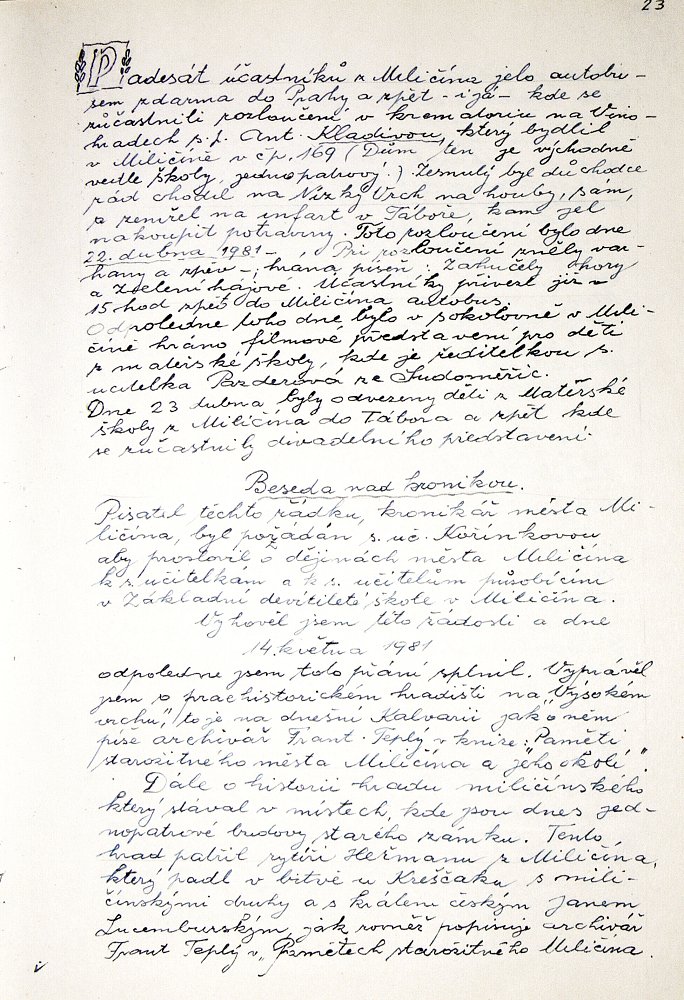 23
Padesát účastníků z Miličína jelo autobu-
sem zdarma do Prahy a zpět - i já - kde se
zúčastnili rozloučení v krematoriu na Vino-
hradech s. p. Ant. Kladivou, který bydlil
v Miličíně v čp. 169 (Dům ten je východně
vedle školy, jednopatrový.) Zesnulý byl důchodce
rád chodil na Nízký Vrch na houby, sám,
a zemřel na infart v Táboře, kam jel
nakoupit potraviny. Toto rozloučení bylo dne
22. dubna 1981 - , Při rozloučení zněly var-
hany a zpěv -; hrana píseň: Zahučely hory
a Zdeleni hájové. Účastníky přivezl již v
15 hod zpět do Miličína autobus.
Odpoledne toho dne bylo v sokolovně v Mili-
číně hráno filmové představení pro děti
z mateřské školy, kde je ředitelkou s.
učitelka Pazderová ze Sudoměřic.
Dne 23 dubna byly odvezeny děti z Mateřské
školy z Miličína do Tábora a zpět kde
se zúčastnily divadelního představení.
Beseda nad kronikou.
Pisatel těchto řádku, kronikář města Mi-
ličína, byl požádán s. uč. Kořínkovou
aby promluvil o dějinách města Miličína
k s. učitelkám a k s. učitelům působícím
v Základní devítileté škole v Miličíně.
Vyhověl jsem této žádosti a dne
14. května 1981
odpoledne jsem toto přání splnil. Vyprávěl
jsem o prachistorickém hradišti na "Vysokém
vrchu," to je na dnešní Kalvarii jak o něm
píše archivář Frant. Teplý v knize: "Paměti
starožitného města Miličína a jeho okolí".
Dále o historii hradu miličínského
který stával v místech, kde jsou dnes jed-
nopatrové budovy starého zámku. Tento
hrad patřil rytíři Heřmanu z Miličína,
který padl v bitvě u Kreščaku, s mili-
čínskými druhy a s králem českým Janem
Lucemburským, jak rovněž popisuje archivář
Frant Teplý v "Pamětech starožitného Miličína.